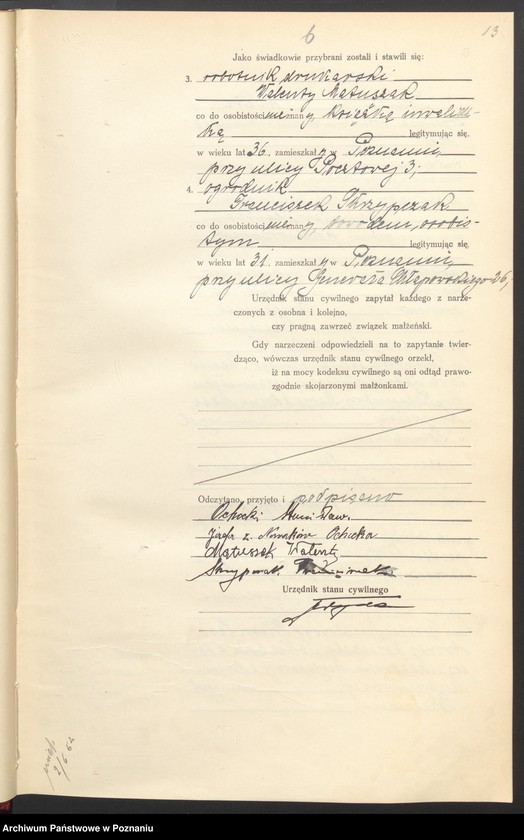 6
13
Jako świadkowie przybrani zostali i stawili się:
3. robotnik drukarski
Walenty Matuszak
co do osobistości nieznany, książką inwalidz-
ką legitymując się,
w wieku lat 36, zamieszkały w Poznaniu,
przy ulicy Pocztowej 3;
4. ogrodnik
Franciszek Skrzypczak
co do osobistości nieznany, dowodem osobis-
tym legitymując się,
w wieku lat 31, zamieszkały w Poznaniu,
przy ulicy Generała Chłapowskiego 26,
Urzędnik stanu cywilnego zapytał każdego z narze-
czonych z osobna i kolejno,
czy pragną zawrzeć związek małżeński.
Gdy narzeczeni odpowiedzieli na to zapytanie twier-
dząco, wówczas urzędnik stanu cywilnego orzekł,
iż na mocy kodeksu cywilnego są oni odtąd prawo-
zgodnie skojarzonymi małżonkami.
Odczytano, przyjęto i podpisano
Ochocki
z. Nowaków Ochocka
Matuszak Walenty
Skrzypczak Franciszek
Urzędnik stanu cywilnego
Archiwum Państwowe w Poznaniu